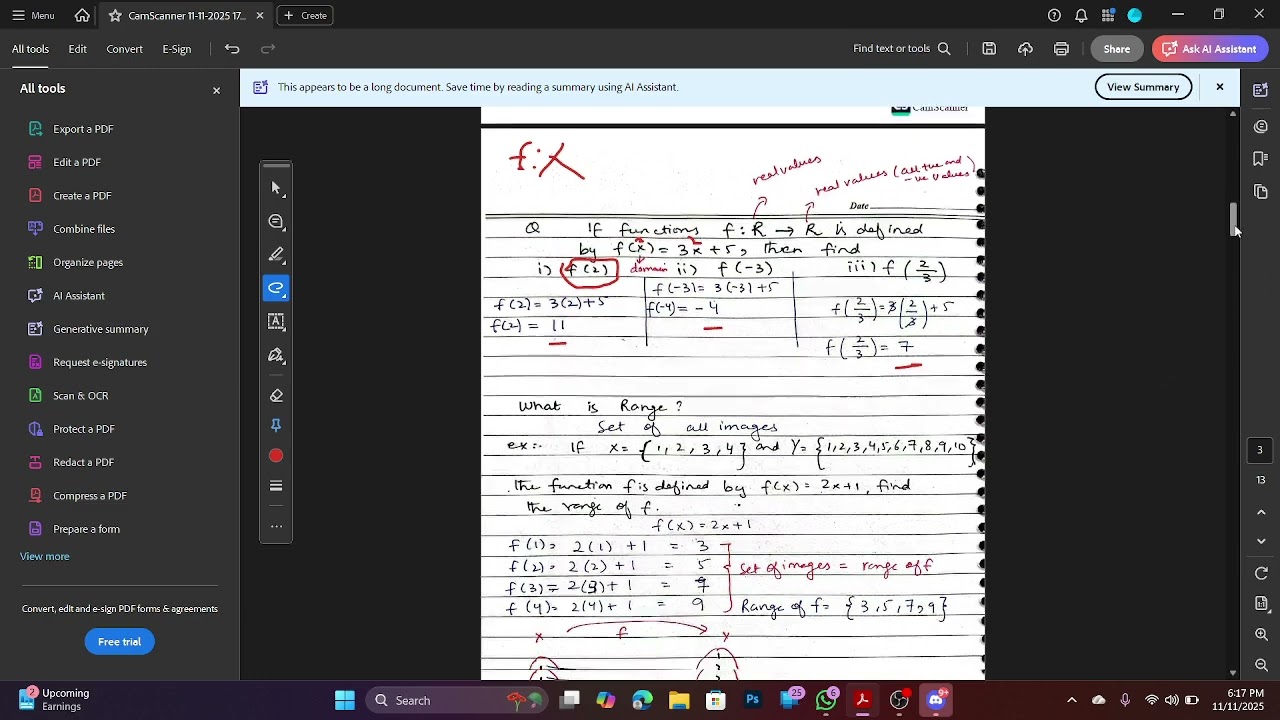 Menu
CamScanner 11-11-2025 17...
Create
All tools
Edit
Convert
E-Sign
Find text or tools
Share
Ask AI Assistant
All tools
This appears to be a long document. Save time by reading a summary using AI Assistant.
View Summary
Export a PDF
Edit a PDF
Create a PDF
Combine files
Organize pages
AI Assistant
Generative summary
Request e-signatures
Scan & OCR
Protect a PDF
Redact a PDF
Compress a PDF
Prepare a form
View more
Convert, edit and e-sign PDF forms & agreements
Free trial
CamScanner
f:X
real values
real values (all +ve and
-ve values)
Date
Q If functions f: R → R is defined
by f(x) = 3x + 5, then find
i) f(2) domain ii) f(-3) iii) f(2/3)
f(-3) = 3(-3)+5
f(2) = 3(2)+5 f(-4) = -4 f(2/3) = 3(2/3) + 5
f(2) = 11
f(2/3) = 7
What is Range?
Set of all images
ex:- If X = {1, 2, 3, 4} and Y = {1,2,3,4,5,6,7,8,9,10}
The function f is defined by f(x) = 2x+1, find
the range of f.
f(x) = 2x+1
f(1) = 2(1) + 1 = 3
f(2) = 2(2) + 1 = 5 Set of images = range of f
f(3) = 2(3) + 1 = 7
f(4) = 2(4) + 1 = 9 Range of f = {3,5,7,9}
x f y
1
2
3
3
13
Upcoming
Earnings
2
Search
25
6
9+
6:17 PM
11/11/2025